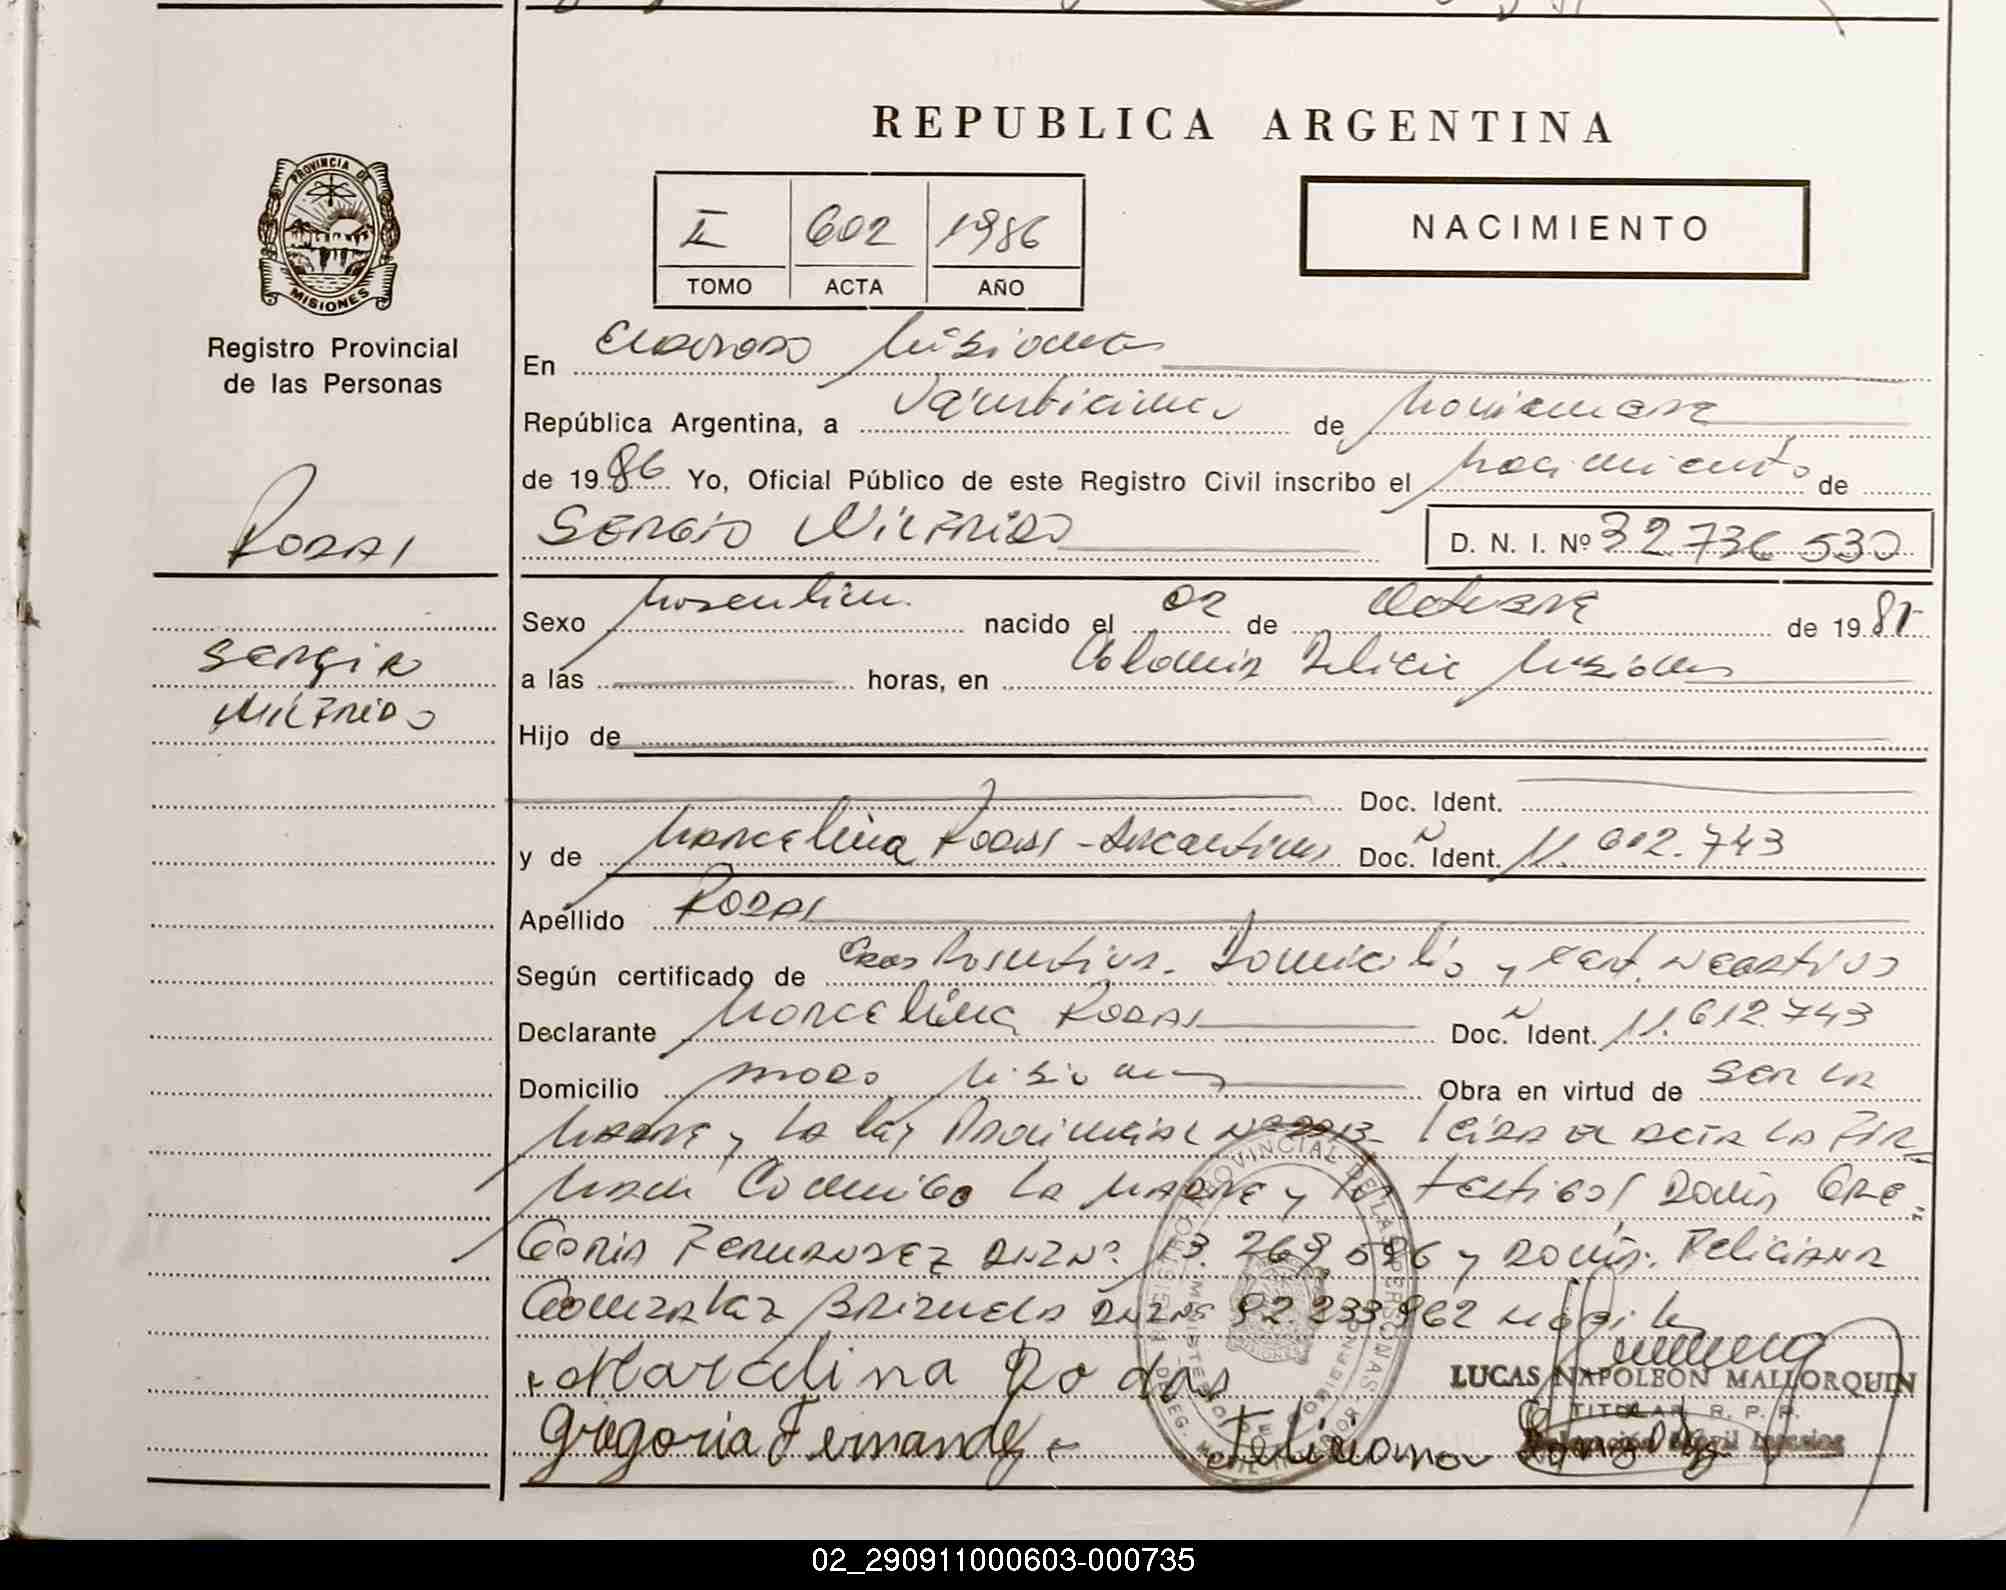 REPUBLICA ARGENTINA
PROVINCIA DE
MISIONES
Registro Provincial
de las Personas
II 602 1986
TOMO ACTA AÑO
NACIMIENTO
En Eldorado Misiones
República Argentina, a de Noviembre
de 1986 Yo, Oficial Público de este Registro Civil inscribo el nacimiento de
RODAS
SERGIO WILFRIDO D. N. I. Nº 32.736 530
Sexo Masculino nacido el 02 de Octubre de 19
SERGIO
WILFRIDO
a las horas, en Colonia Delicia Misiones
Hijo de
Doc. Ident.
y de Marcelina RODAS - Argentina Doc. Ident. 11.612.743
Apellido RODAS
Según certificado de Domicilio y cert. negativo
Declarante Marcelina RODAS Doc. Ident. 11.612.743
Domicilio Misiones Obra en virtud de ser la
Madre y la ley Provincial Nº leida el acta la fir
man conmigo la madre y los testigos Doña Gre
goria Fernandez DNI Nº 13.269.596 y Doña Feliciana
Gonzalez Brizuela DNI Nº 92.233.962
Marcelina Rodas
LUCAS NAPOLEON MALLORQUIN
TITULAR R. P. P.
Gregoria Fernandez Feliciana
02_290911000603-000735